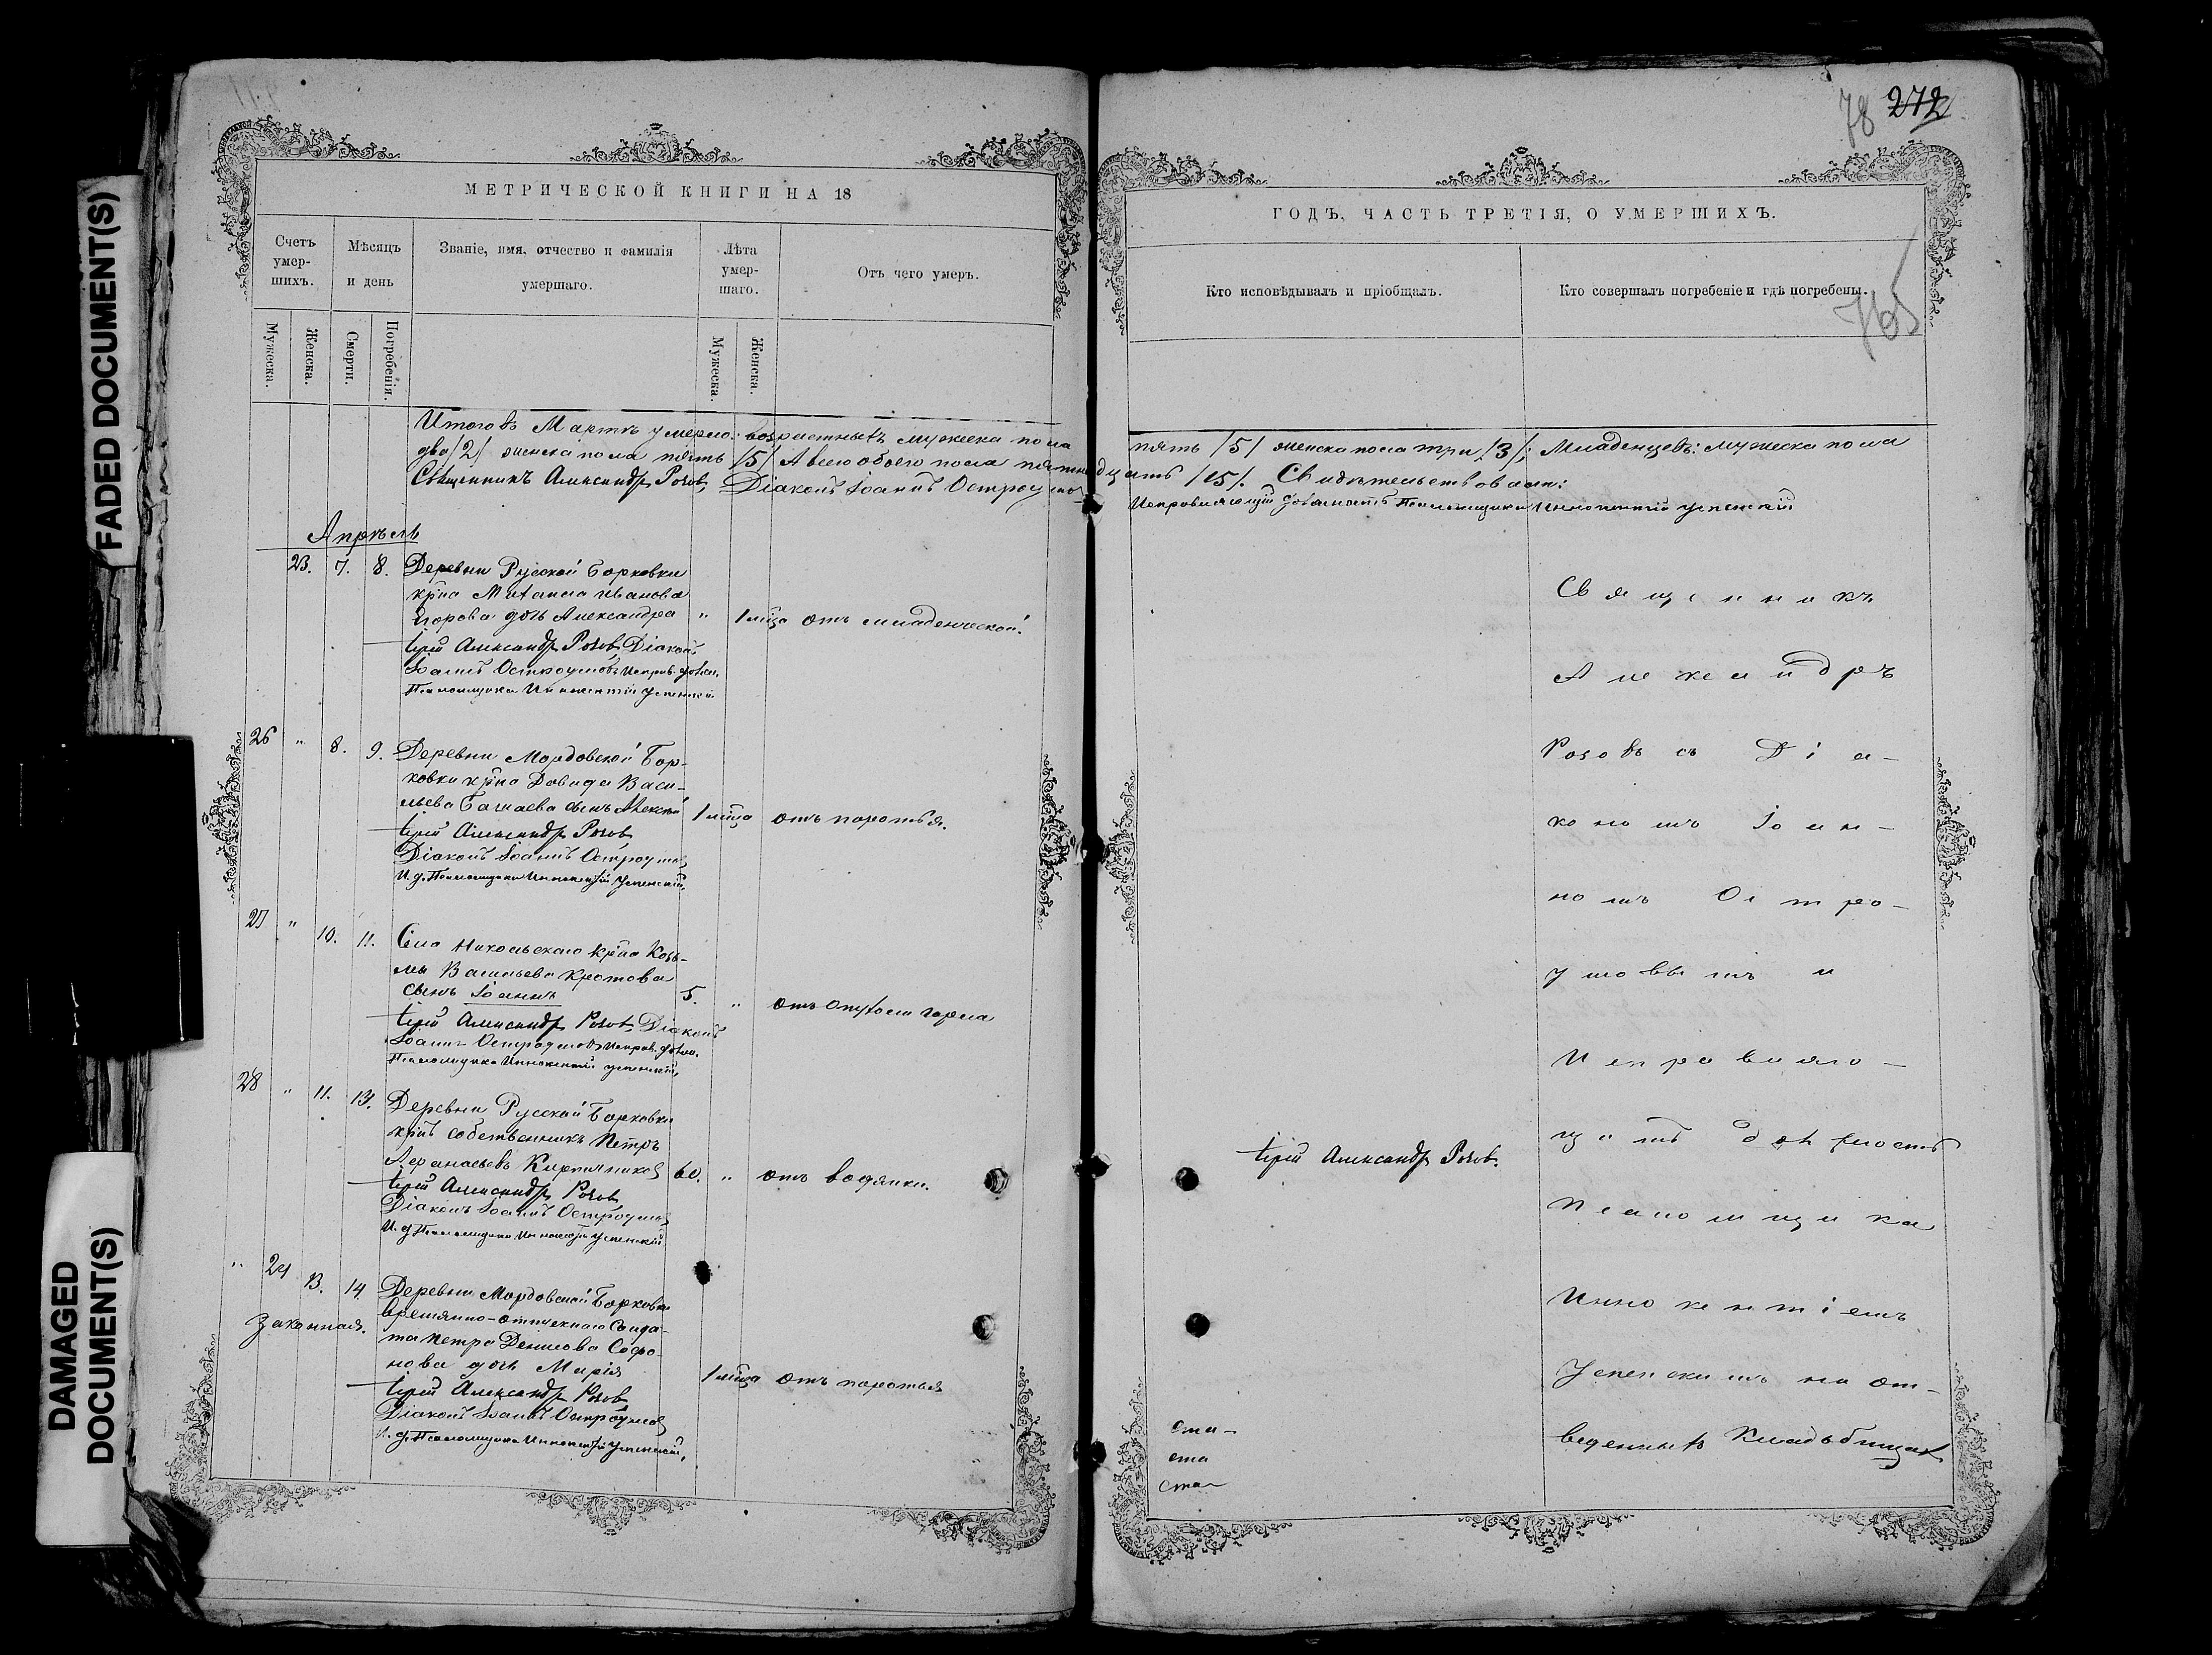 FADED DOCUMENT(S)
DAMAGED
DOCUMENT(S)
МЕТРИЧЕСКОЙ КНИГИ НА 18
Счетъ умер-шихъ.
Мѣсяцъ и день
Званіе, имя, отчество и фамилія умершаго.
Лѣта умер-шаго.
Отъ чего умеръ.
Мужеска.
Женска.
Смерти.
Погребенія.
Мужеска.
Женска.
Итого въ Мартѣ умерло: возрастныхъ мужеска пола
два /2/ женска пола пять /5/ А всего обоего пола пятнад
Священникъ Александръ Розовъ, Діаконъ Іоаннъ Остроумо
Апрѣль
23. 7. 8. Деревни Русской Борковки
крна Михаила Иванова
Егорова дочь Александра " 1 мѣца отъ младенческой.
Іерей Александръ Розовъ, Діаконъ
Іоаннъ Остроумовъ, Исправ. должн.
Псаломщика Иннокентій Успенскій
26 " 8. 9. Деревни Мордовской Бор-
ковки крна Давида Васи-
льева сынъ Алексѣй 1 мѣца отъ поротья.
Іерей Александръ Розовъ
Діаконъ Іоаннъ Остроумо
И. д. Псаломщика Иннокентій Успенскій.
27 " 10. 11. Села Никольскаго крна Козь-
мы Васильева Кротова
сынъ Іоаннъ 5. " отъ опухоли горла
Іерей Александръ Розовъ, Діаконъ
Іоаннъ Остроумовъ, Исправ. должн.
Псаломщика Иннокентій Успенскій,
28 " 11. 13. Деревни Русской Борковки
крнъ собственникъ Петръ
Аѳанасьевъ Кирпичниковъ 60. " отъ водянки.
Іерей Александръ Розовъ
Діаконъ Іоаннъ Остроумо
И. д. Псаломщика Иннокентій Успенскій
" 24 13. 14 Деревни Мордовской Борковки
Законная.
временно-отпускнаго Солда-
та Петра Денисова Софро-
нова дочь Марія 1 мѣца отъ поротья
Іерей Александръ Розовъ
Діаконъ Іоаннъ Остроумовъ
И. д. Псаломщика Иннокентій Успенскій.
78 272
ГОДЪ, ЧАСТЬ ТРЕТІЯ, О УМЕРШИХЪ.
Кто исповѣдывалъ и пріобщалъ.
Кто совершалъ погребеніе и гдѣ погребены.
765
пять /5/ женска пола три /3/; Младенцевъ: мужеска пола
цать /15/. Свидѣтельствовали:
Исправляющій должность Псаломщика Иннокентій Успенскій
Священникъ
Александръ
Розовъ съ Діа-
кономъ Іоан-
номъ Остро-
умовымъ и
Исправляю-
щимъ должность
Псаломщика
Іерей Александръ Розовъ.
Иннокентіемъ
Успенскимъ на от-
веденныхъ Кладбищахъ